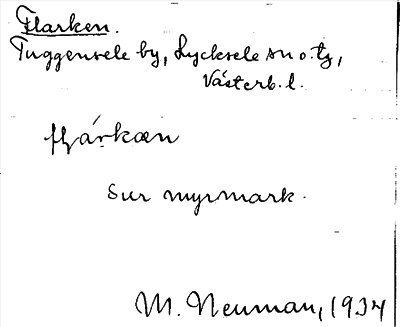 Flarken.
Tuggensele by, Lycksele sn o. tg,
Västerb. l.
sur myrmark.
M. Neuman, 1934